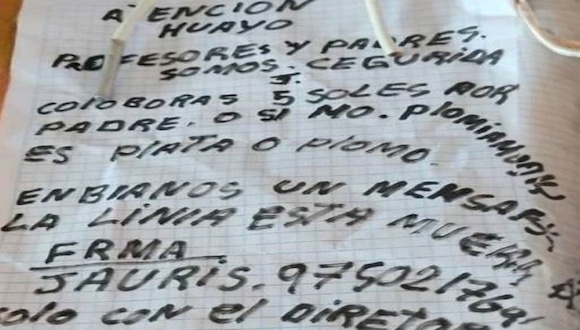 ATENCION
HUAYO
PROFESORES Y PADRES.
SOMOS. CEGURIDA
COLOBORAS 5 SOLES POR
PADRE. O SI NO. PlOMIAMOS
ES PlATA O PlOMO.
ENBIANOS UN MENSAFE
LA LINIA ESTA MUERA
FRMA
JAURIS. 975021769
solo con el DIRETOR